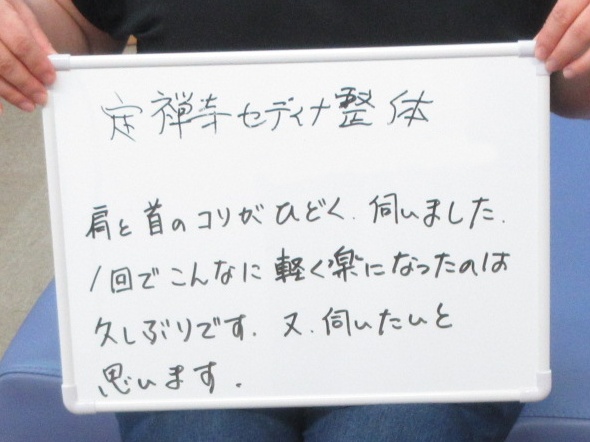 定禅寺セディナ整体
肩と首のコリがひどく、伺いました。
1回でこんなに軽く楽になったのは
久しぶりです。又、伺いたいと
思います。